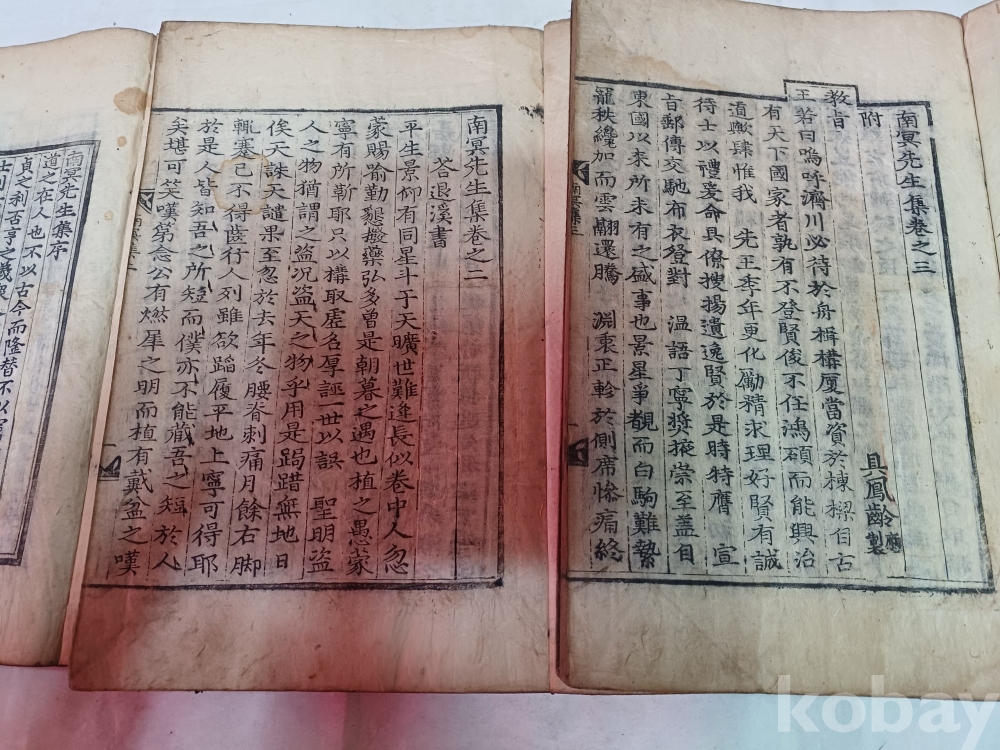 南冥先生集卷之三
附
教旨 具鳳齡製
王若曰嗚呼濟川必待於舟楫構廈當資於棟樑自古
有天下國家者孰有不登賢俊不任鴻碩而能興治
道歟肆惟我 先王季年更化勵精求理好賢有誠
待士以禮爰命具僚搜揚遺逸賢於是時特膺 宣
旨郵傳交馳布衣登對 溫語丁寧奬掖崇至盖自
東國以來所未有之盛事也景星爭覩而白駒難縶
寵秩纔加而雲翮還騰 淵衷正軫於側席慘痛終
南冥先生集卷之二
答退溪書
平生景仰有同星斗于天曠世難逢長似卷中人忽
蒙賜喩勤懇撥藥弘多曾是朝暮之遇也植之愚蒙
寧有所靳耶只以構取虛名厚誣一世以誤 聖明盜
人之物猶謂之盜況盜天之物乎用是跼蹐無地日
俟天誅天譴果至忽於去年冬腰脊刺痛月餘右脚
輒蹇已不得齒行人列雖欲蹈履平地上寧可得耶
於是人皆知吾之所短而僕亦不能藏吾之短於人
矣堪可笑嘆第念公有燃星之明而植有戴盆之嘆
南冥先生集序
道之在人也不以古今而隆替不以
貞之利否亨之幾
kobay